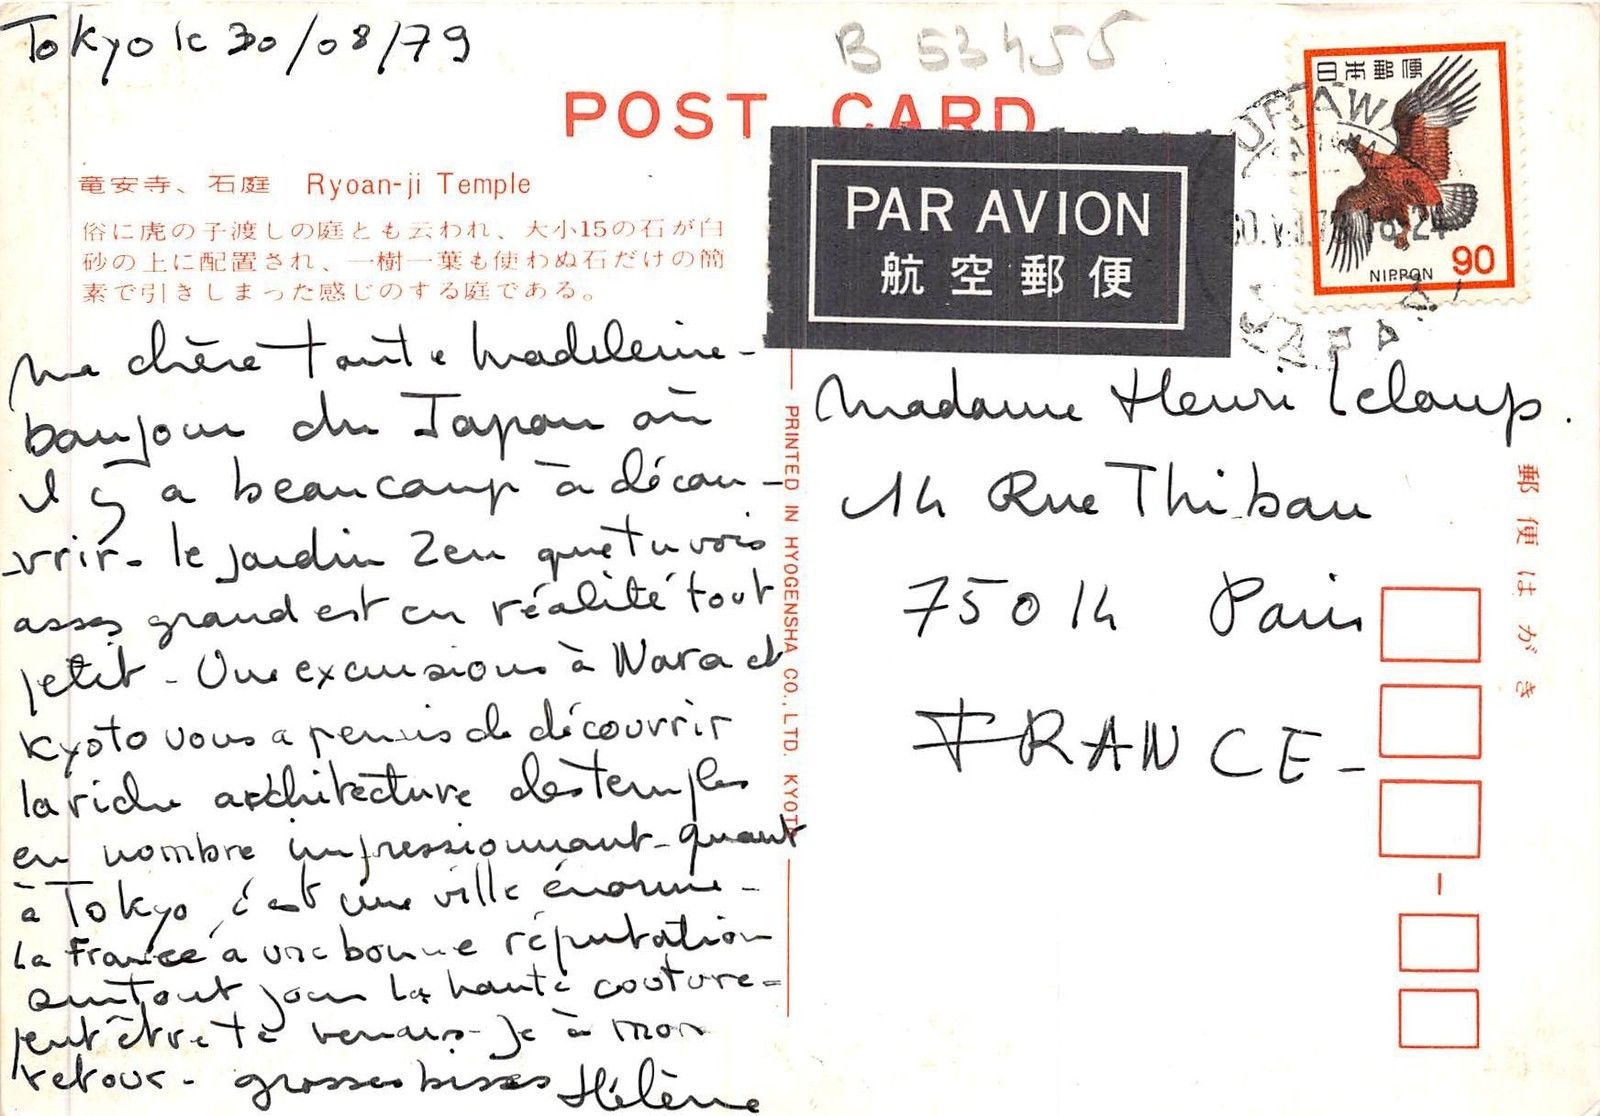 Tokyo le 30/08/79
B 53455
POST CARD
竜安寺、石庭 Ryoan-ji Temple
俗に虎の子渡しの庭とも云われ、大小15の石が白
砂の上に配置され、一樹一葉も使わぬ石だけの簡
素で引きしまった感じのする庭である。
PAR AVION
航空郵便
日本郵便
NIPPON 90
URAWA
JAPAN
Ma chère tante Madeleine-
bonjour du Japon où
il y a beaucoup à décou-
-vrir- le jardin Zen que tu vois
assez grand est en réalité tout
petit - Une excursion à Nara et
Kyoto nous a permis de découvrir
la riche architecture des temples
en nombre impressionnant- quant
à Tokyo, c'est une ville énorme-
la France a une bonne réputation
surtout pour la haute couture-
peut être te verrais-je à mon
retour- grosses bises Hélène
PRINTED IN HYOGENSHA CO., LTD. KYOTO
Madame Henri Leloup.
14 Rue Thibau
75014 Paris
FRANCE-
郵便はがき